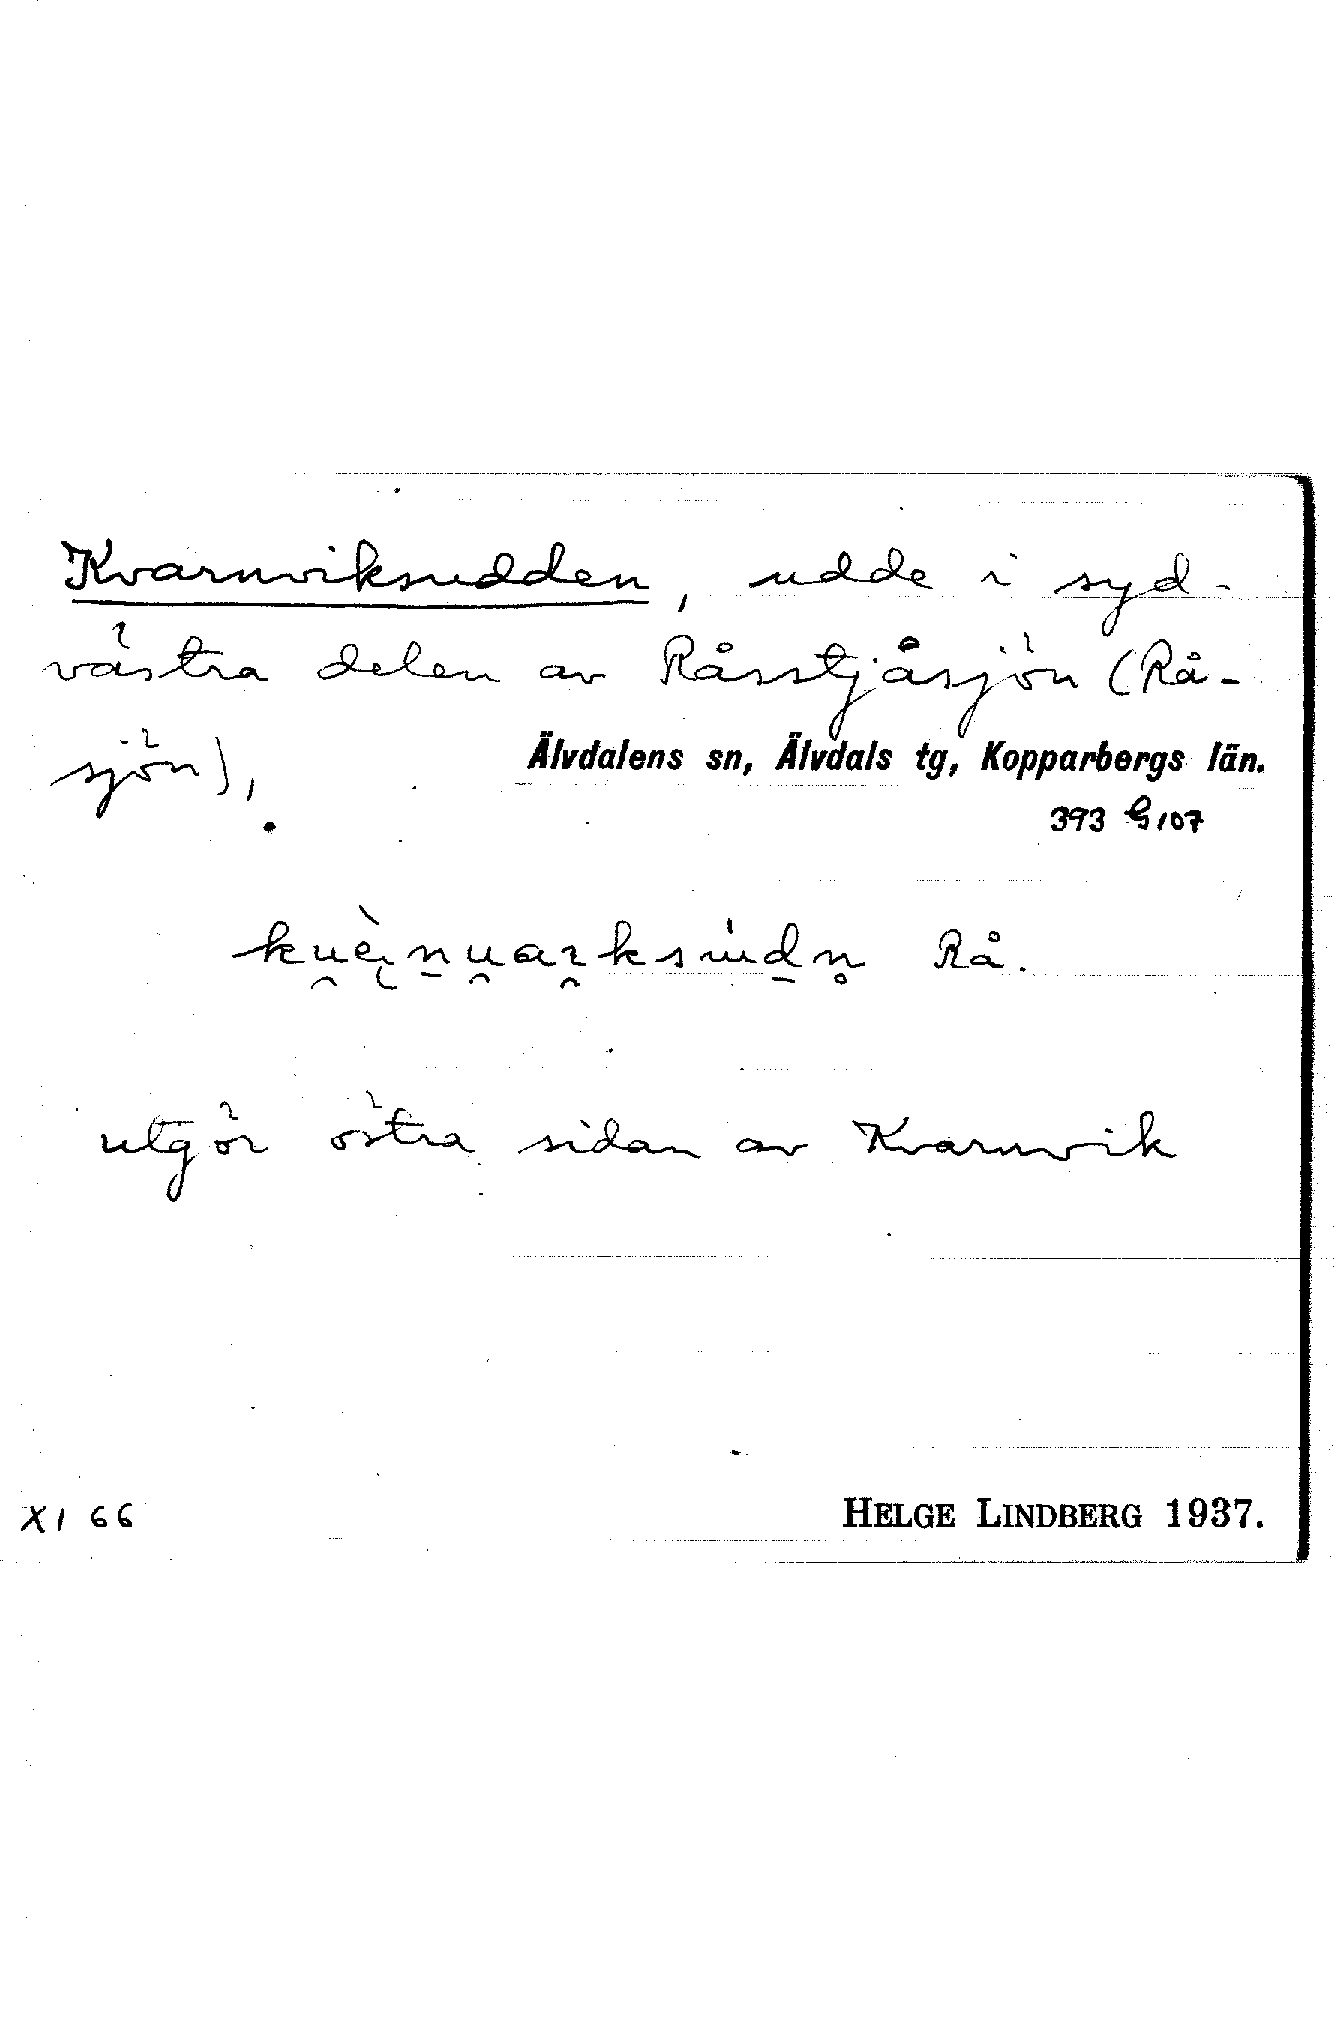 Kvarnviksudden, udde i syd-
västra delen av Råsstjåsjön (Rå-
sjön),
Älvdalens sn, Älvdals tg, Kopparbergs län.
393 G 107
Rå.
utgör östra sidan av Kvarnvik
XI 66
HELGE LINDBERG 1937.